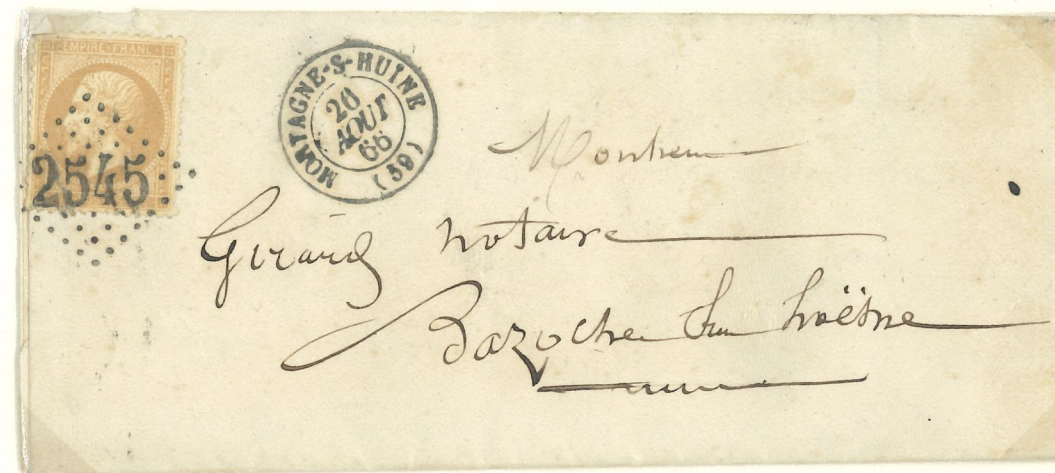 EMPIRE FRANC
2545
MORTAGNE-S-HUINE
26
AOUT
66
(59)
Monsieur
Girard notaire
Bazoche sur hoësne